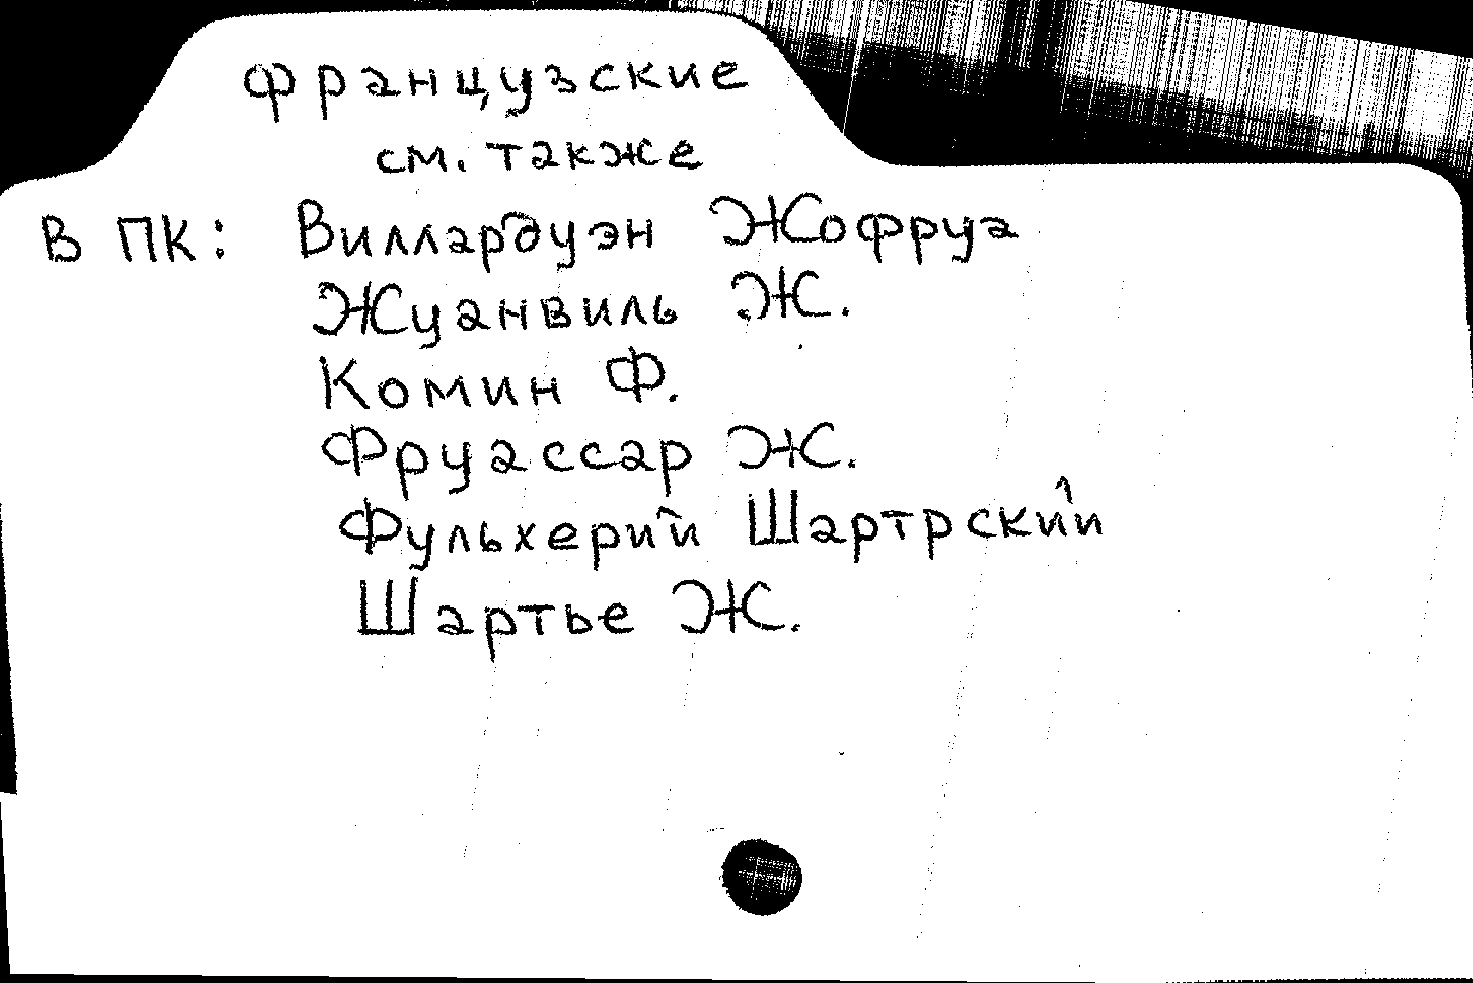 французские
см. также
В ПК: Виллардуэн Жофруа
Жуанвиль Ж.
Комин Ф.
Фруассар Ж.
Фульхерий Шартрский
Шартье Ж.